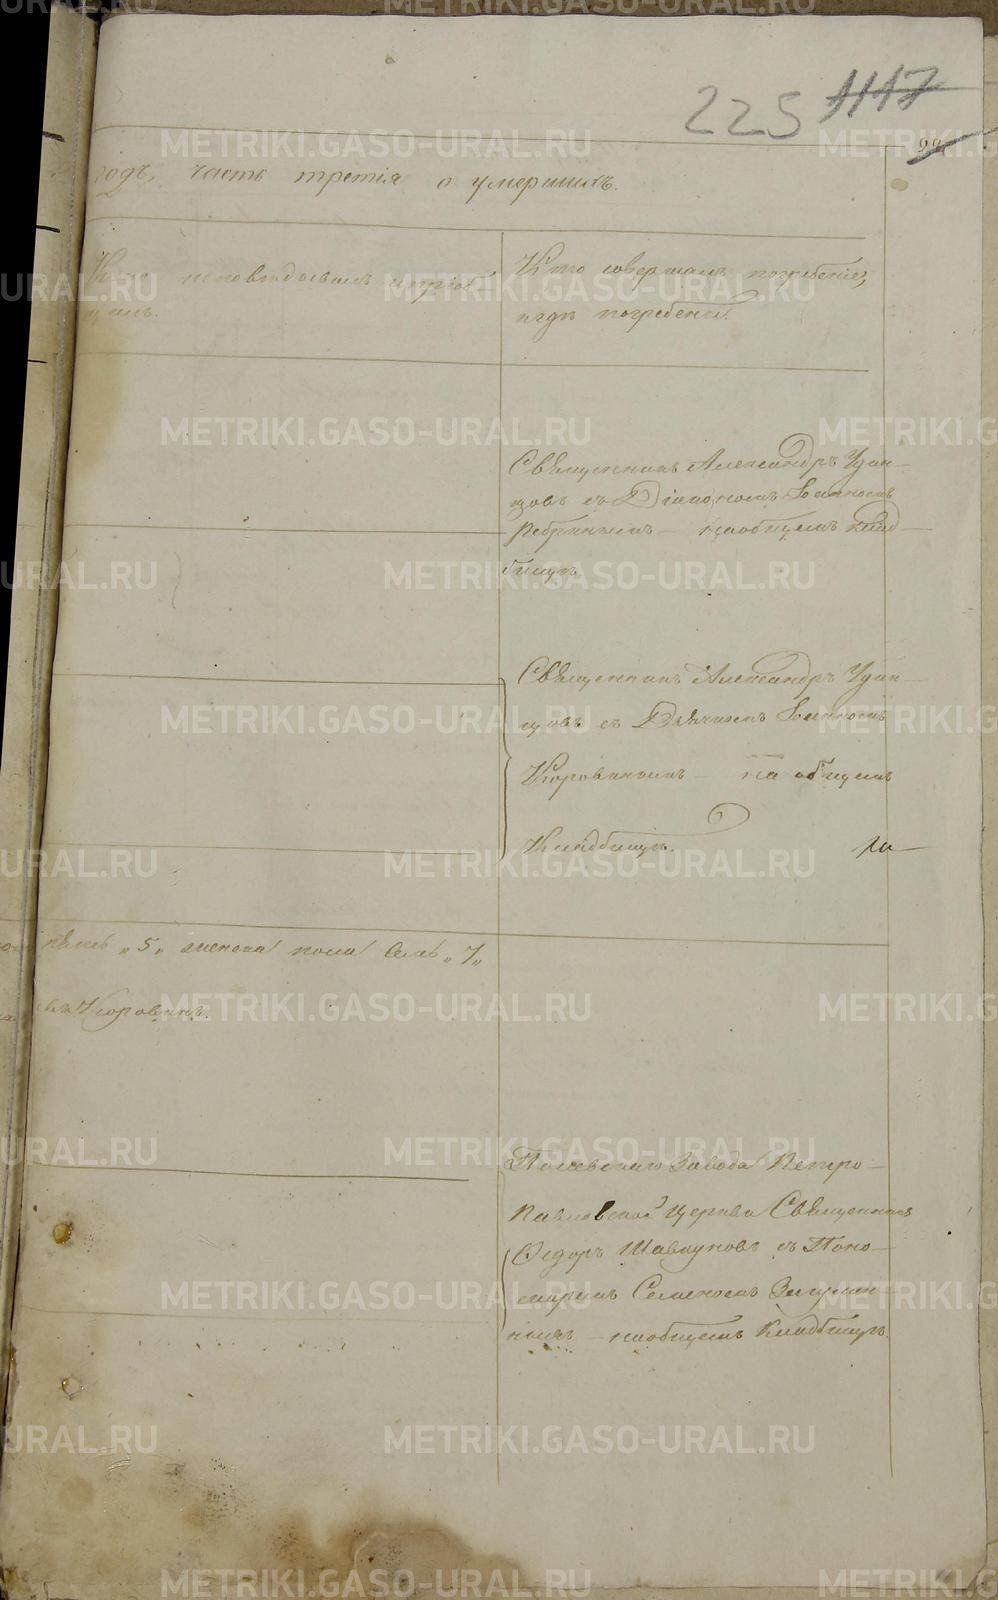 225 1117
годъ, часть третія о умершихъ.
Кто исповѣдовалъ и пріоб
щалъ.
Кто совершалъ погребеніе,
и гдѣ погребены.
Священникъ Александръ Удин
цовъ съ Діакономъ Іоанномъ
Ребринымъ на общемъ клад
бищѣ
Священникъ Александръ Удин
цовъ съ Дьячкомъ Іоанномъ
Коровинымъ на общемъ
Кладбищѣ.
пять „5„ женска пола Семь „7„
Коровинъ.
Полевскаго Завода Петро
Павловской Церкви Священникъ
Ѳедоръ Шавкуновъ съ Поно
маремъ Семеномъ
на общемъ Кладбищѣ.
METRIKI.GASO-URAL.RU